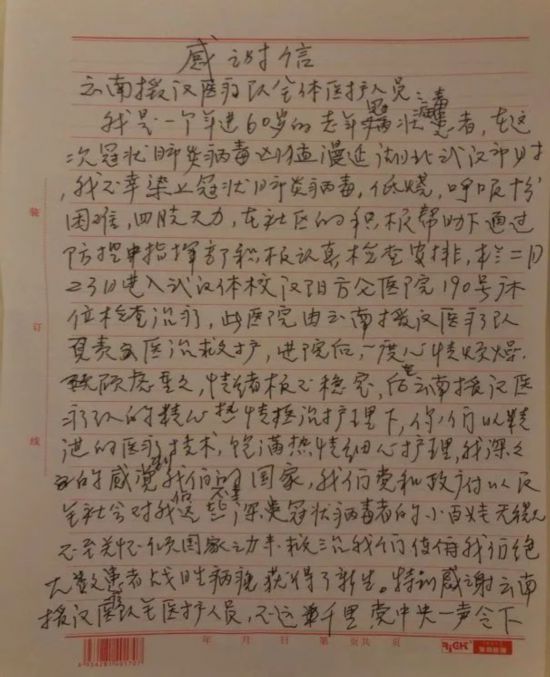 感谢信
云南援汉医疗队全体医护人员：
我是一个年进60岁的老年冠状病毒患者，在这
次冠状肺炎病毒凶猛漫延湖北武汉市时
，我不幸染上冠状肺炎病毒，低烧，呼吸十分
困难，四肢无力，在社区的积极帮助下通过
防控指挥部积极认真检查安排，于二月
23日进入武汉体校汉阳方仓医院190号床
位检查治疗，此医院由云南援汉医疗队
负责医治救护，进院后，一度心情烦燥
顾虑重重，情绪极不稳定，后在云南援汉医
疗队的精心热情医治护理下，你们以精
进的医疗技术，饱满热情细心护理，我深深
的感觉到我们的国家，我们党和政府以及
全社会对我们这些深患冠状病毒者的小百姓无微
不至关怀倾国家之力来救治我们使得我们绝
大数患者战胜病魔获得了新生。特别感谢云南
援汉医疗队全医护人员，不远千里党中央一声令下
装
订
线
年 月 日 第 页共 页
RiCH
6934281405707